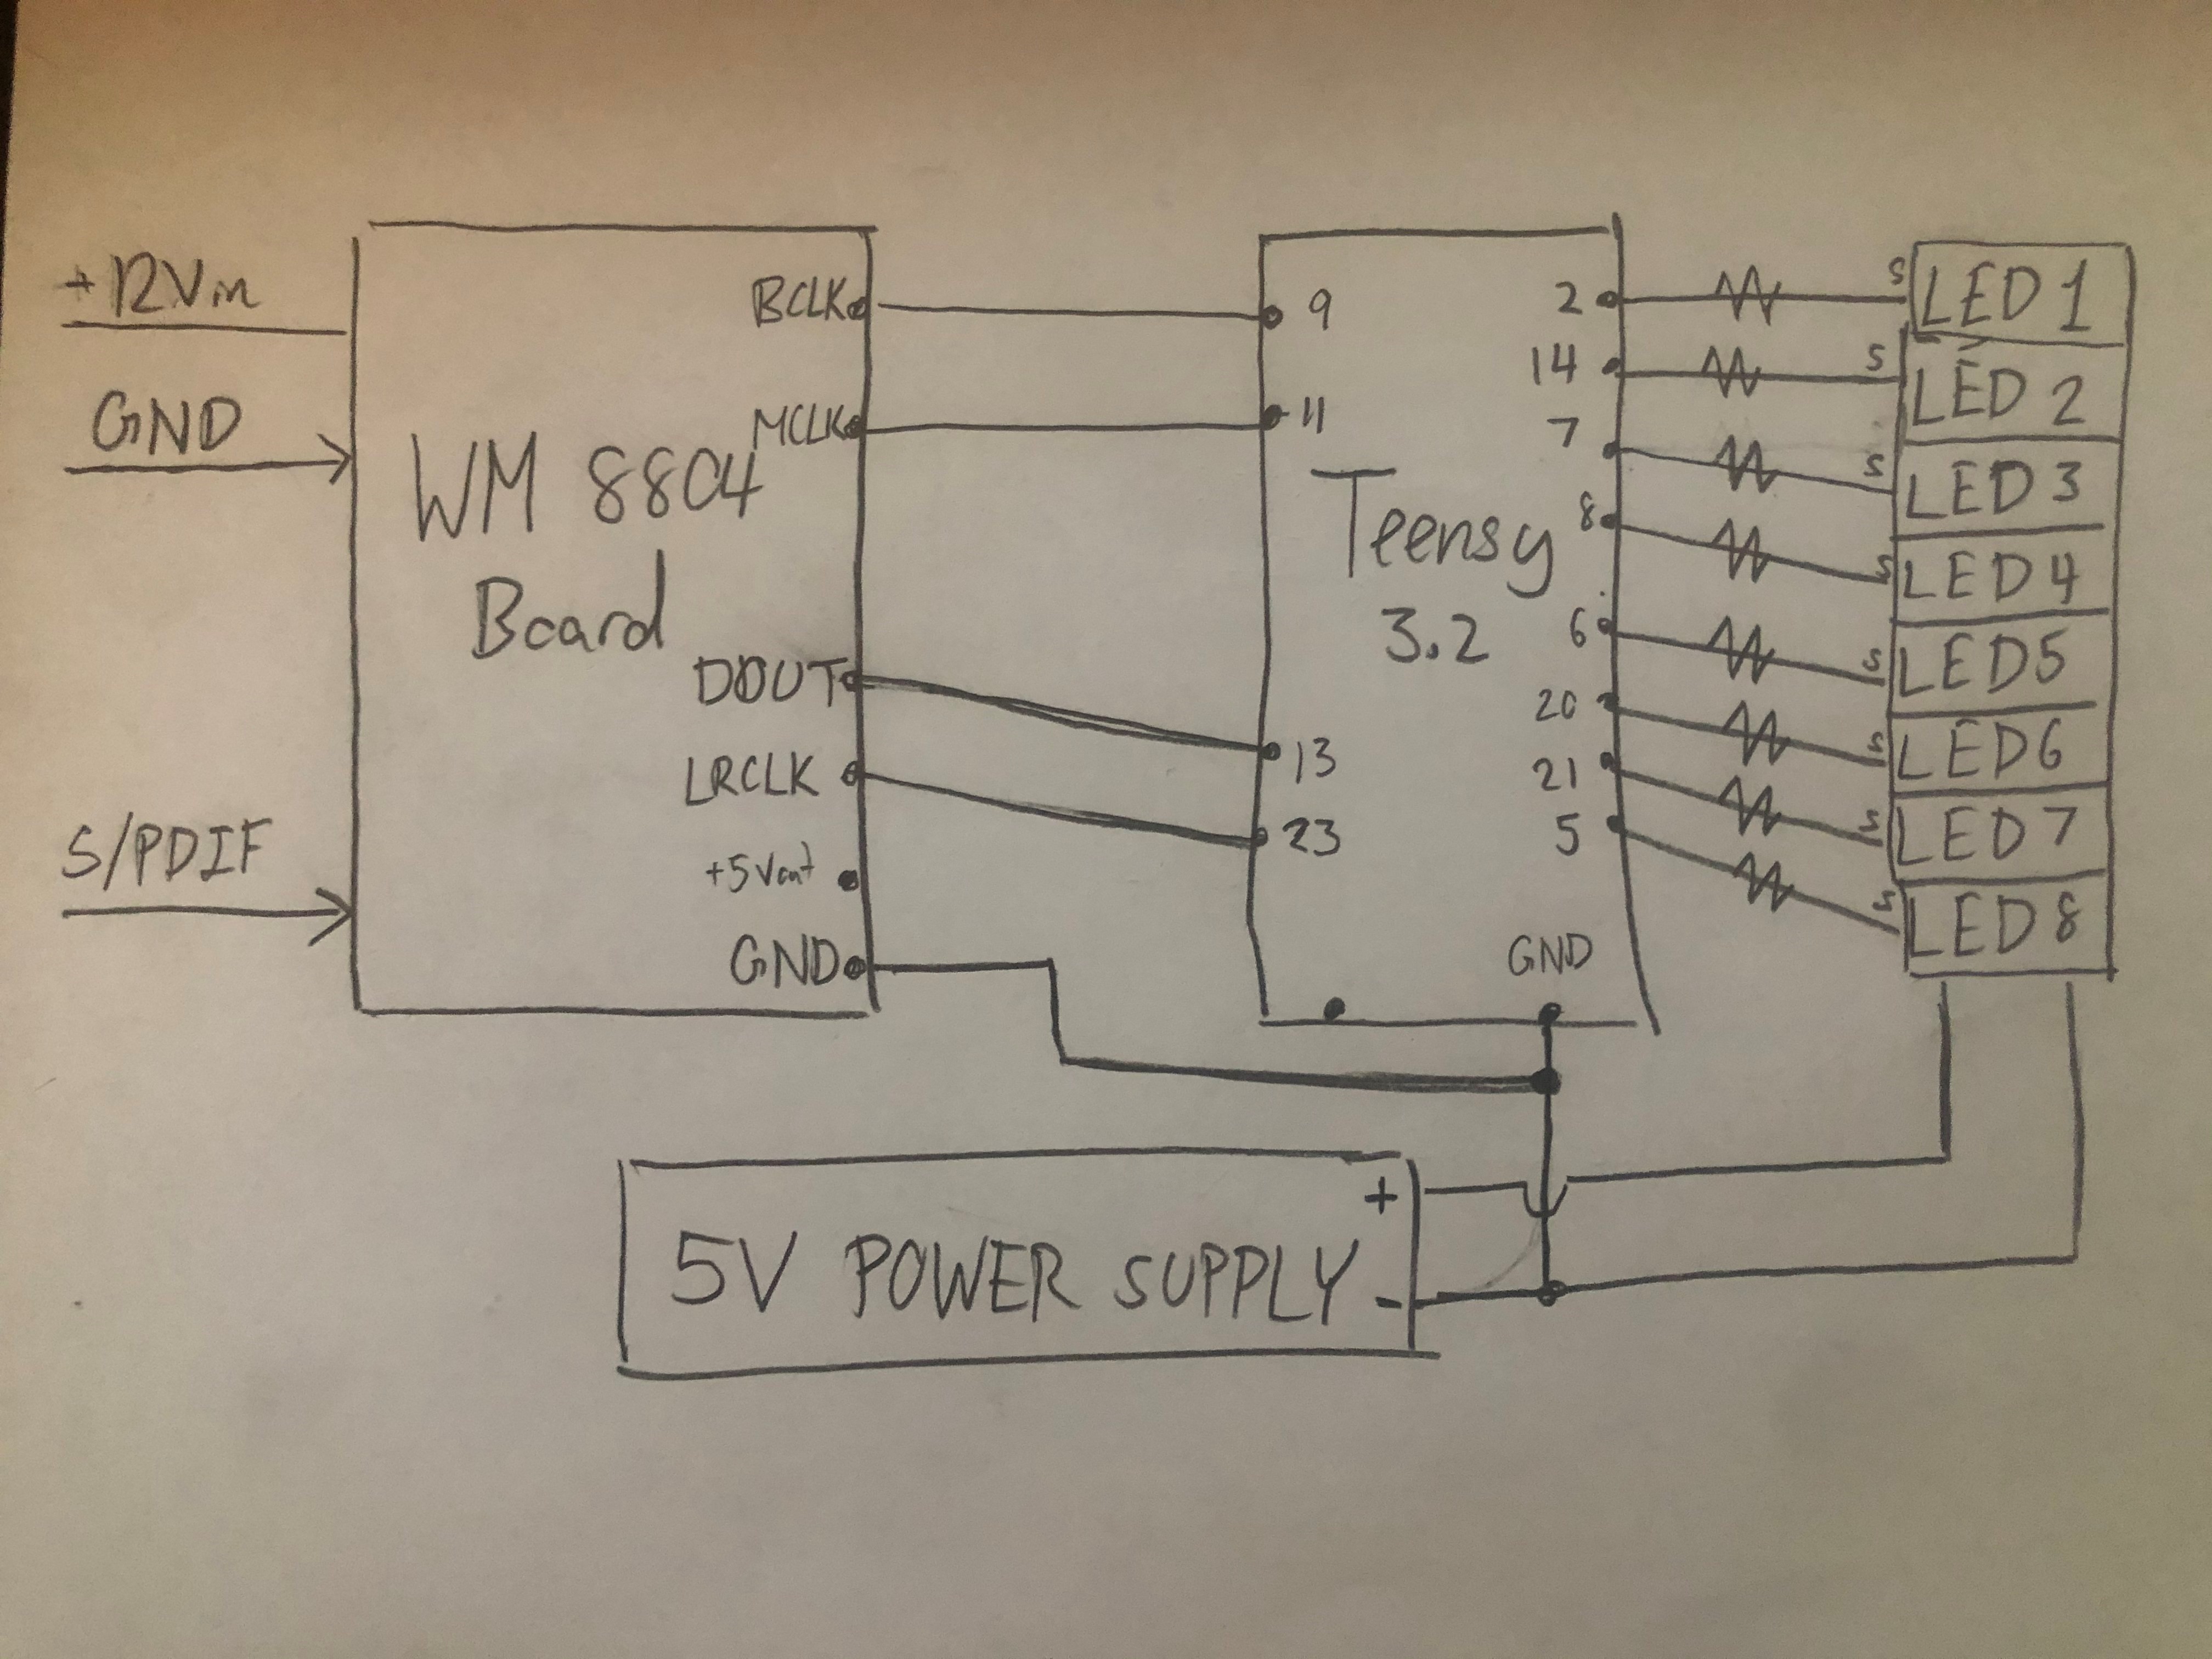 +12Vin
GND
S/PDIF
WM 8804
Board
BCLK
MCLK
DOUT
LRCLK
+5Vout
GND
Teensy
3.2
9
11
13
23
2
14
7
8
6
20
21
5
GND
S LED 1
S LED 2
S LED 3
S LED 4
S LED 5
S LED 6
S LED 7
S LED 8
5V POWER SUPPLY
+
-